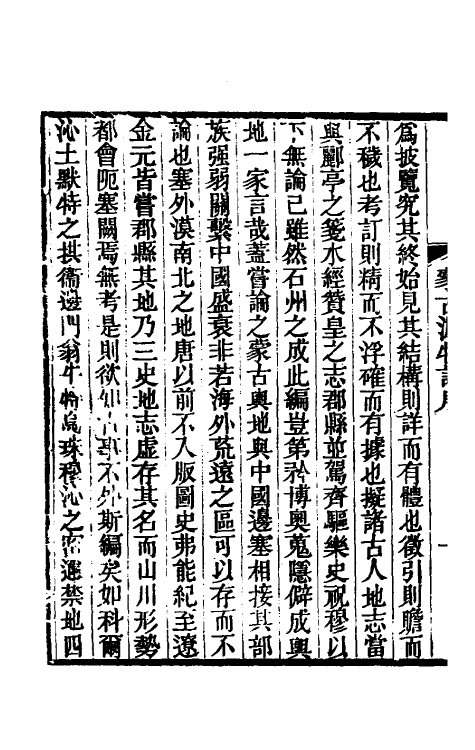 爲披覽究其終始見其結構則詳而有體也徵引則贍而
不穢也考訂則精而不浮確而有據也擬諸古人地志當
與酈亭之箋水經贊皇之志郡縣並駕齊驅樂史祝穆以
下無論已雖然石州之成此編豈第矜博奧蒐隱僻成輿
地一家言哉蓋嘗論之蒙古輿地與中國邊塞相接其部
族强弱關繫中國盛衰非若海外荒遠之區可以存而不
論也塞外漠南北之地唐以前不入版圖史弗能紀至遼
金元皆嘗郡縣其地乃三史地志虛存其名而山川形勢
都會阨塞闕焉無考是則欲知古事不外斯編矣如科爾
沁土默特之拱衞邊門翁牛特烏珠穆沁之密邇禁地四
蒙古游牧記序
一